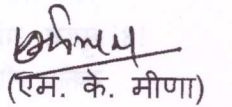 (एम. के. मीणा)